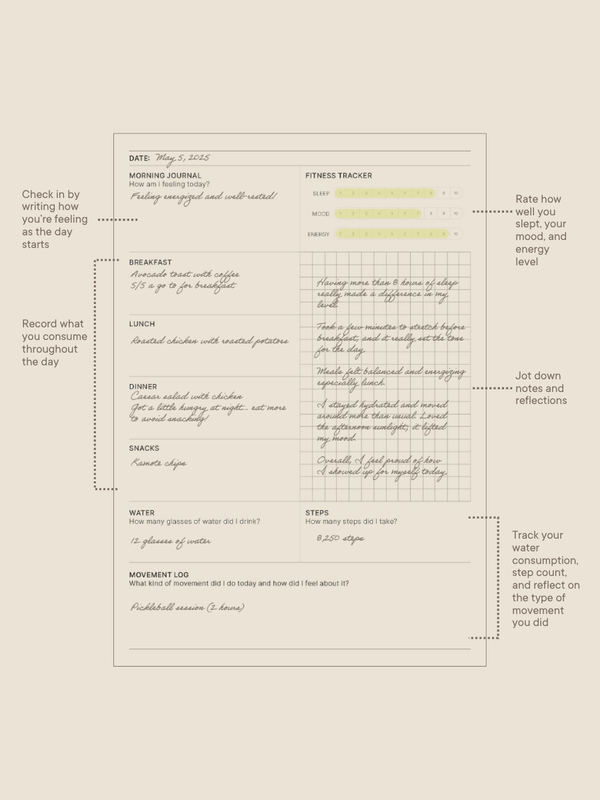 DATE: May 5, 2025
MORNING JOURNAL
How am I feeling today?
Feeling energized and well-rested!
FITNESS TRACKER
SLEEP 1 2 3 4 5 6 7 8 9 10
MOOD 1 2 3 4 5 6 7 8 9 10
ENERGY 1 2 3 4 5 6 7 8 9 10
Check in by
writing how
you're feeling
as the day
starts
Rate how
well you
slept, your
mood, and
energy
level
BREAKFAST
Avocado toast with coffee
5/5 a go to for breakfast
LUNCH
Roasted chicken with roasted potatoes
DINNER
Caesar salad with chicken
Got a little hungry at night... eat more
to avoid snacking!
SNACKS
Kamote chips
Record what
you consume
throughout
the day
Having more than 8 hours of sleep
really made a difference in my
level.
Took a few minutes to stretch before
breakfast, and it really set the tone
for the day.
Meals felt balanced and energizing
especially lunch.
I stayed hydrated and moved
around more than usual. Loved
the afternoon sunlight; it lifted
my mood.
Overall, I feel proud of how
I showed up for myself today.
Jot down
notes and
reflections
WATER
How many glasses of water did I drink?
12 glasses of water
STEPS
How many steps did I take?
8,250 steps
MOVEMENT LOG
What kind of movement did I do today and how did I feel about it?
Pickleball session (2 hours)
Track your
water
consumption,
step count,
and reflect on
the type of
movement
you did